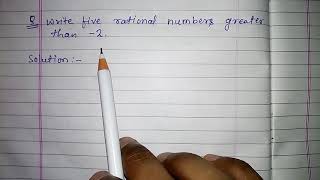 Q Write five rational numbers greater
than -2.
Solution:-